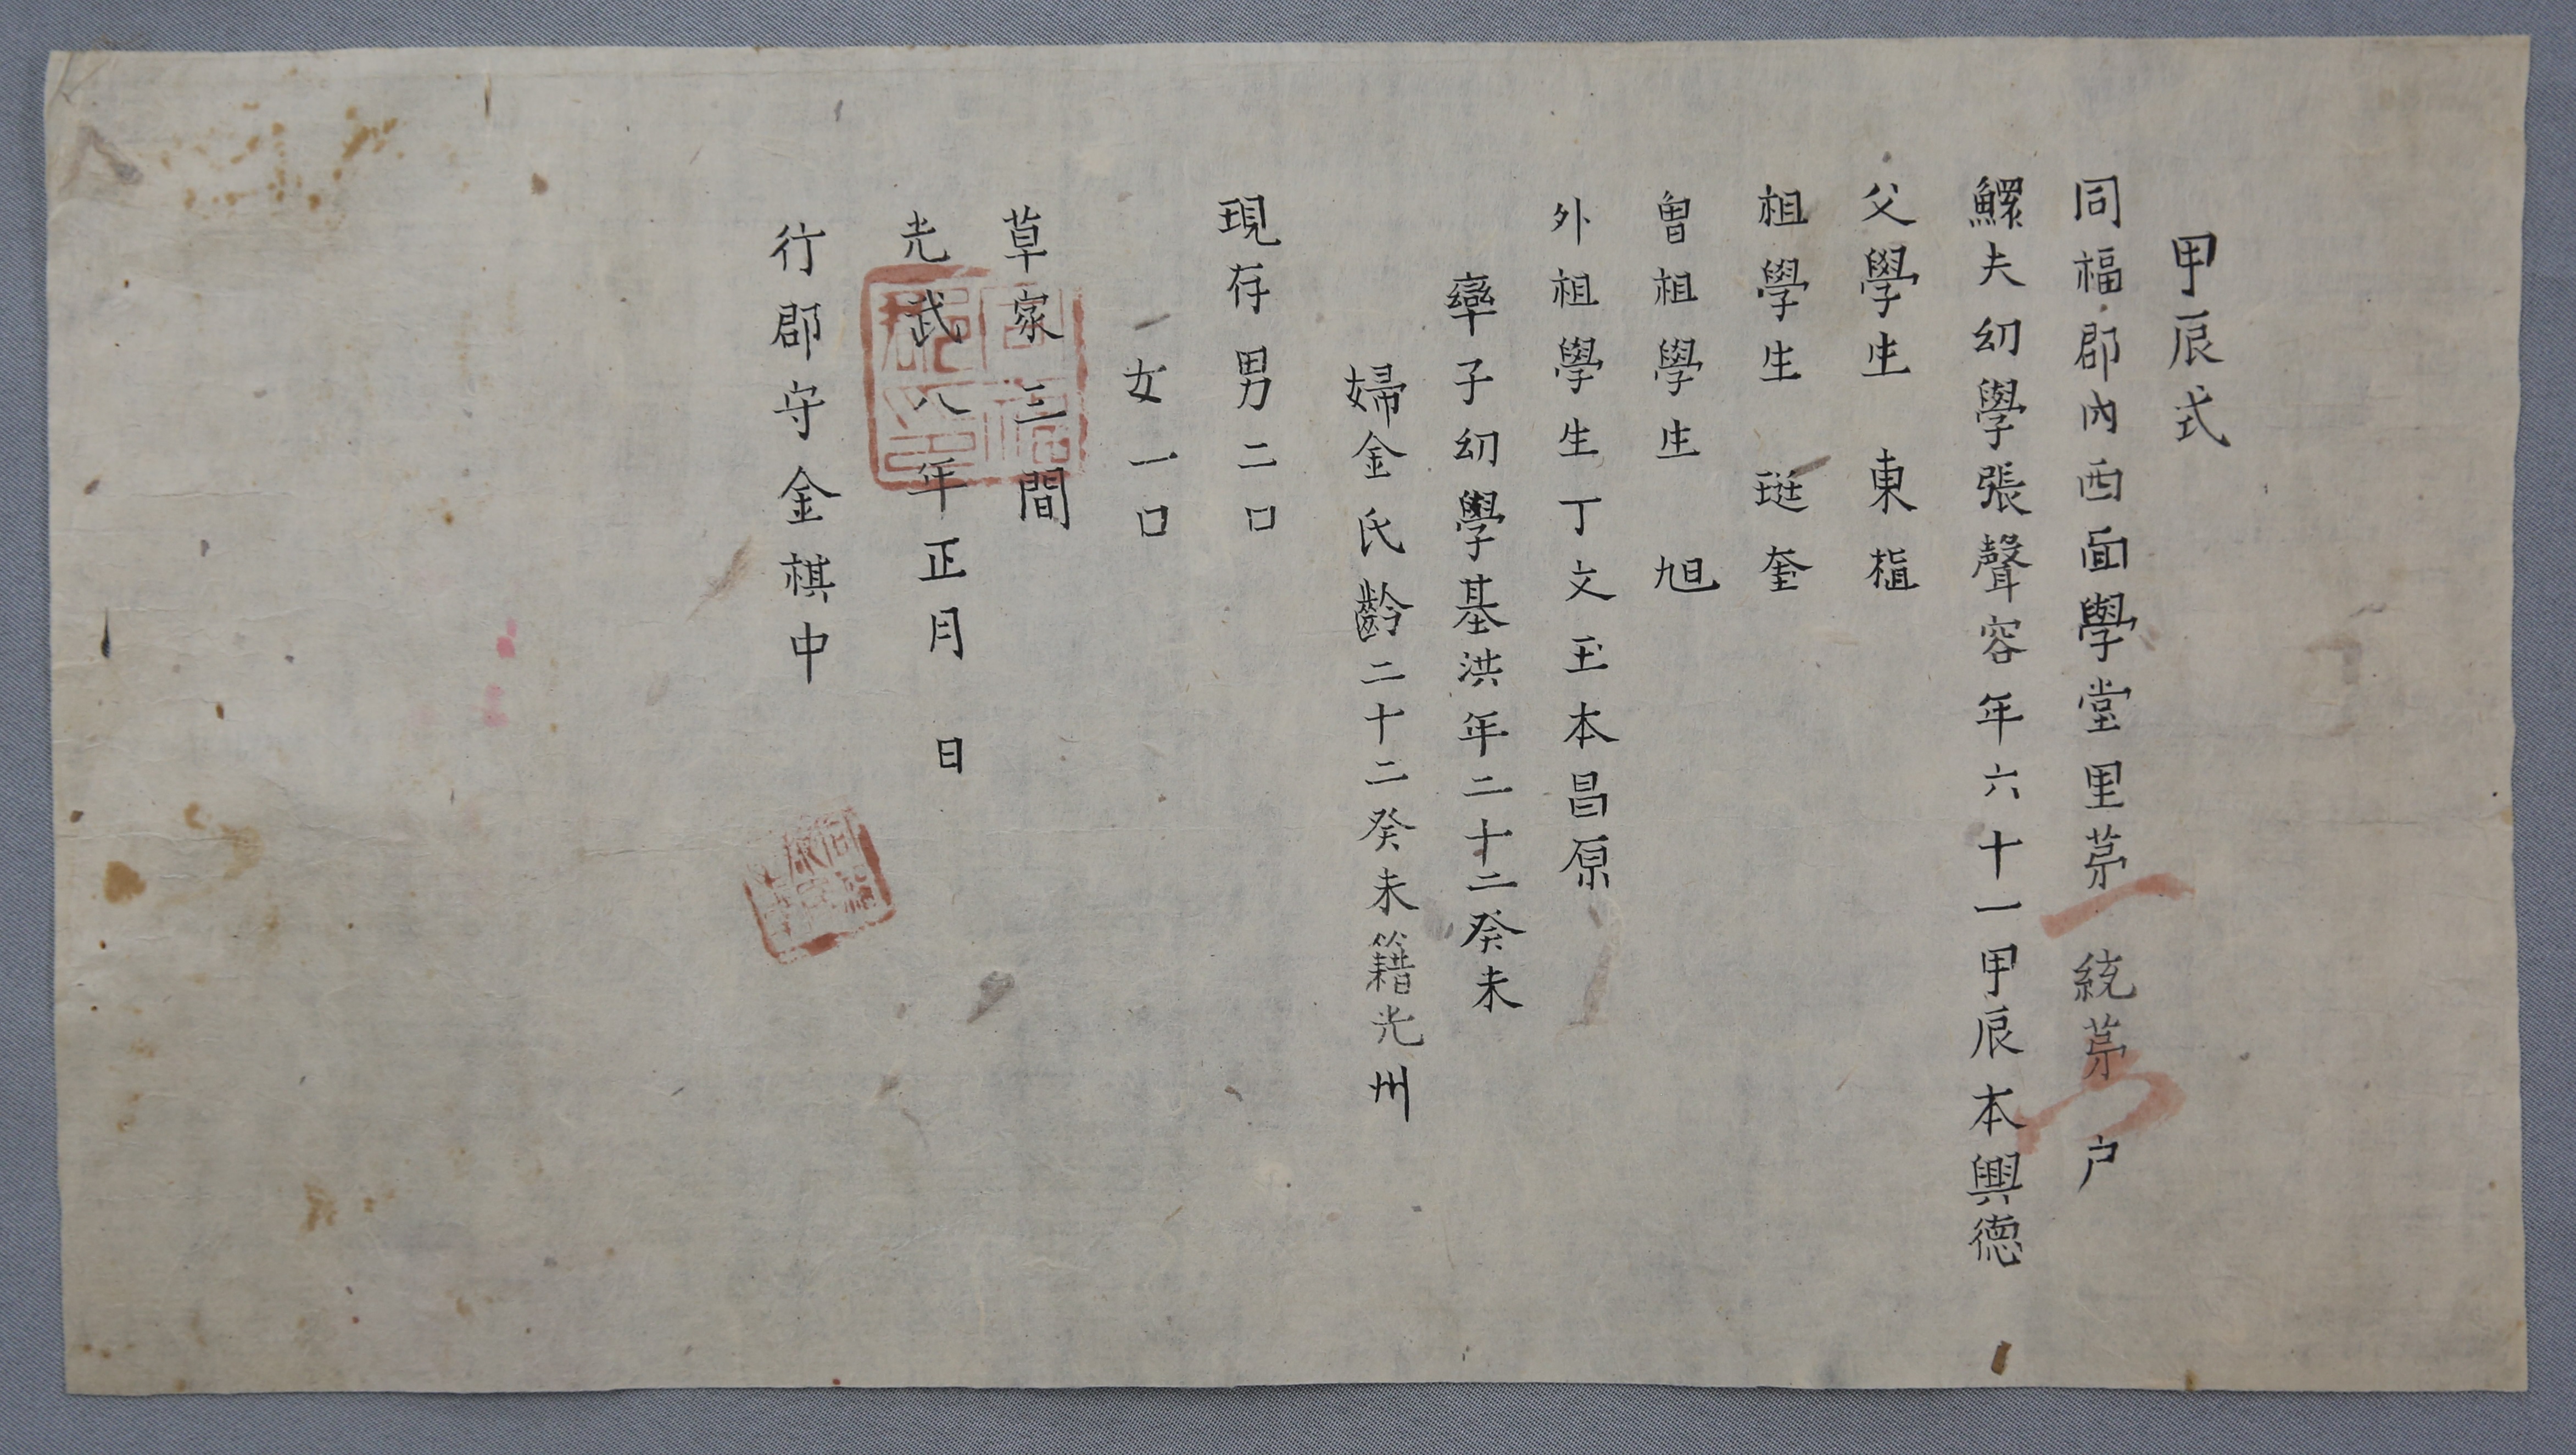 甲辰式
同福郡內西面學堂里苐一統苐 户
鰥夫幼學張聲容年六十一甲辰本興德
父學生 東楅
祖學生 珽奎
曾祖學生 旭
外祖學生丁文玉本昌原
率子幼學基洪年二十二癸未
婦金氏齡二十二癸未籍光州
現存男二口
女一口
草家三間
光武八年正月 日
行郡守金棋中